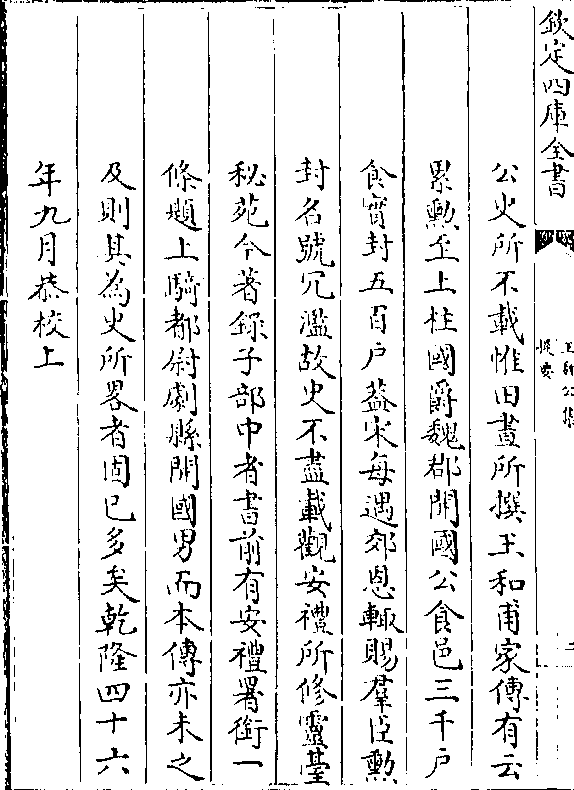 欽定四庫全書
提要
公史所不載惟田晝所撰王和甫家傳有云
累勲至上柱國爵魏郡開國公食邑三千户
食實封五百户葢宋每遇郊恩輒賜羣臣勲
封名號冗濫故史不盡載觀安禮所修靈臺
秘苑今著錄子部中者書前有安禮署銜一
條題上騎都尉劇縣開國男而本傳亦未之
及則其為史所畧者固已多矣乾隆四十六
年九月恭校上